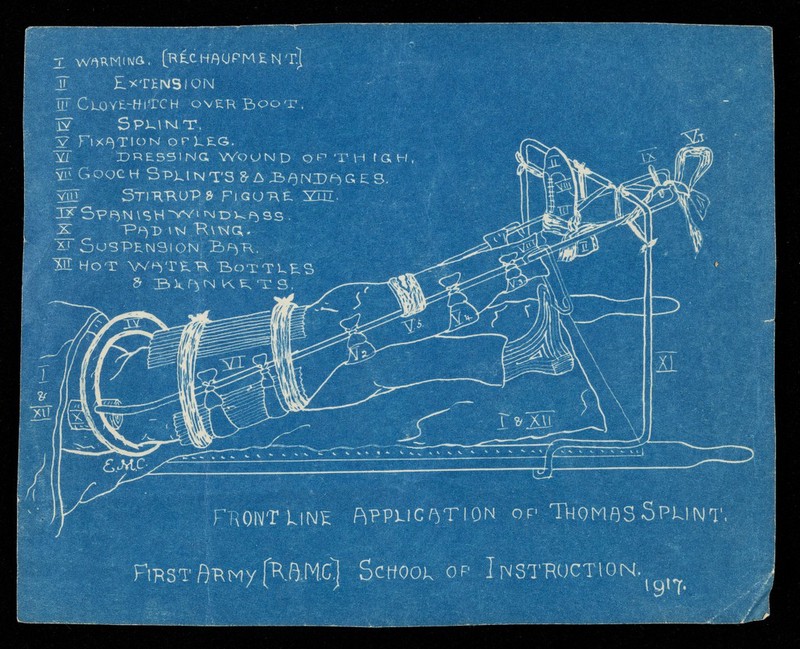 I WARMING. [RÉCHAUFMENT.]
II EXTENSION
III CLOVE-HITCH OVER BOOT.
IV SPLINT.
V FIXATION OF LEG.
VI DRESSING WOUND OF THIGH.
VII GOOCH SPLINTS & Δ BANDAGES.
VIII STIRRUP & FIGURE VIII.
IX SPANISH WINDLASS.
X PAD IN RING.
XI SUSPENSION BAR.
XII HOT WATER BOTTLES
& BLANKETS.
V1
IX
II
VIII
III
VII
II
V5
V4
V3
V2
VI
IV
I
&
XII
X
XI
I & XII
E.M.C.
FRONT LINE APPLICATION OF THOMAS SPLINT.
FIRST ARMY [R.A.M.C.] SCHOOL OF INSTRUCTION.
1917.